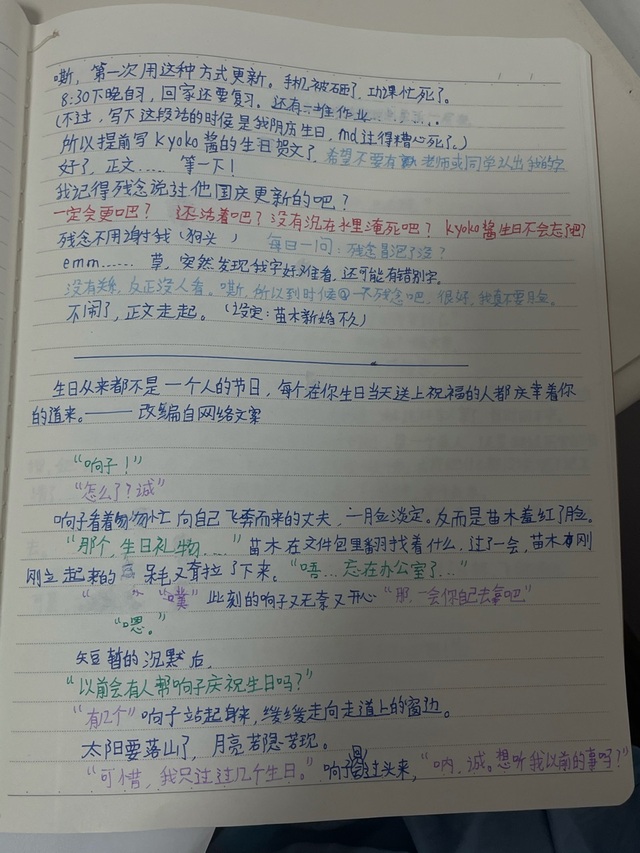 嘶，第一次用这种方式更新。手机被砸了，功课忙死了。
8:30下晚自习，回家还要复习。还有一堆作业………
（不过，写下这段话的时候是我阴历生日，md过得糟心死了。）
所以提前写kyoko酱的生日贺文了，希望不要有老师或同学认出我的字
好了，正文…… 等一下！
我记得残念说过他国庆更新的吧？
一定会更吧？ 还活着吧？没有沉在水里淹死吧？ kyoko酱生日不会忘了吧？
残念不用谢我（狗头 ） 每日一问：残念冒泡了没？
emm…… 草，突然发现我字好难看，还可能有错别字。
没有关系，反正没人看。嘶，所以到时候@一下残念吧，很好，我真不要脸。
不闹了，正文走起。（设定：苗木新婚不久）
生日从来都不是一个人的节日，每个在你生日当天送上祝福的人都庆幸着你
的道来。—— 改编自网络文案
“响子！”
“怎么了？诚”
响子看着匆匆忙忙向自己飞奔而来的丈夫，一脸淡定。反而是苗木羞红了脸。
“那个，生日礼物……” 苗木在文件包里翻找着什么，过了一会，苗木刚
刚立起来的呆毛又耷拉了下来。“唔…忘在办公室了…”
“噗” 此刻的响子又无奈又开心 “那，一会你自己去拿吧”
“嗯。”
短暂的沉默后，
“以前会有人帮响子庆祝生日吗？”
“有几个” 响子站起身来，缓缓走向走道上的窗边。
太阳要落山了，月亮若隐若现。
“可惜，我只过过几个生日。” 响子回过头来，“呐，诚。想听我以前的事吗？”